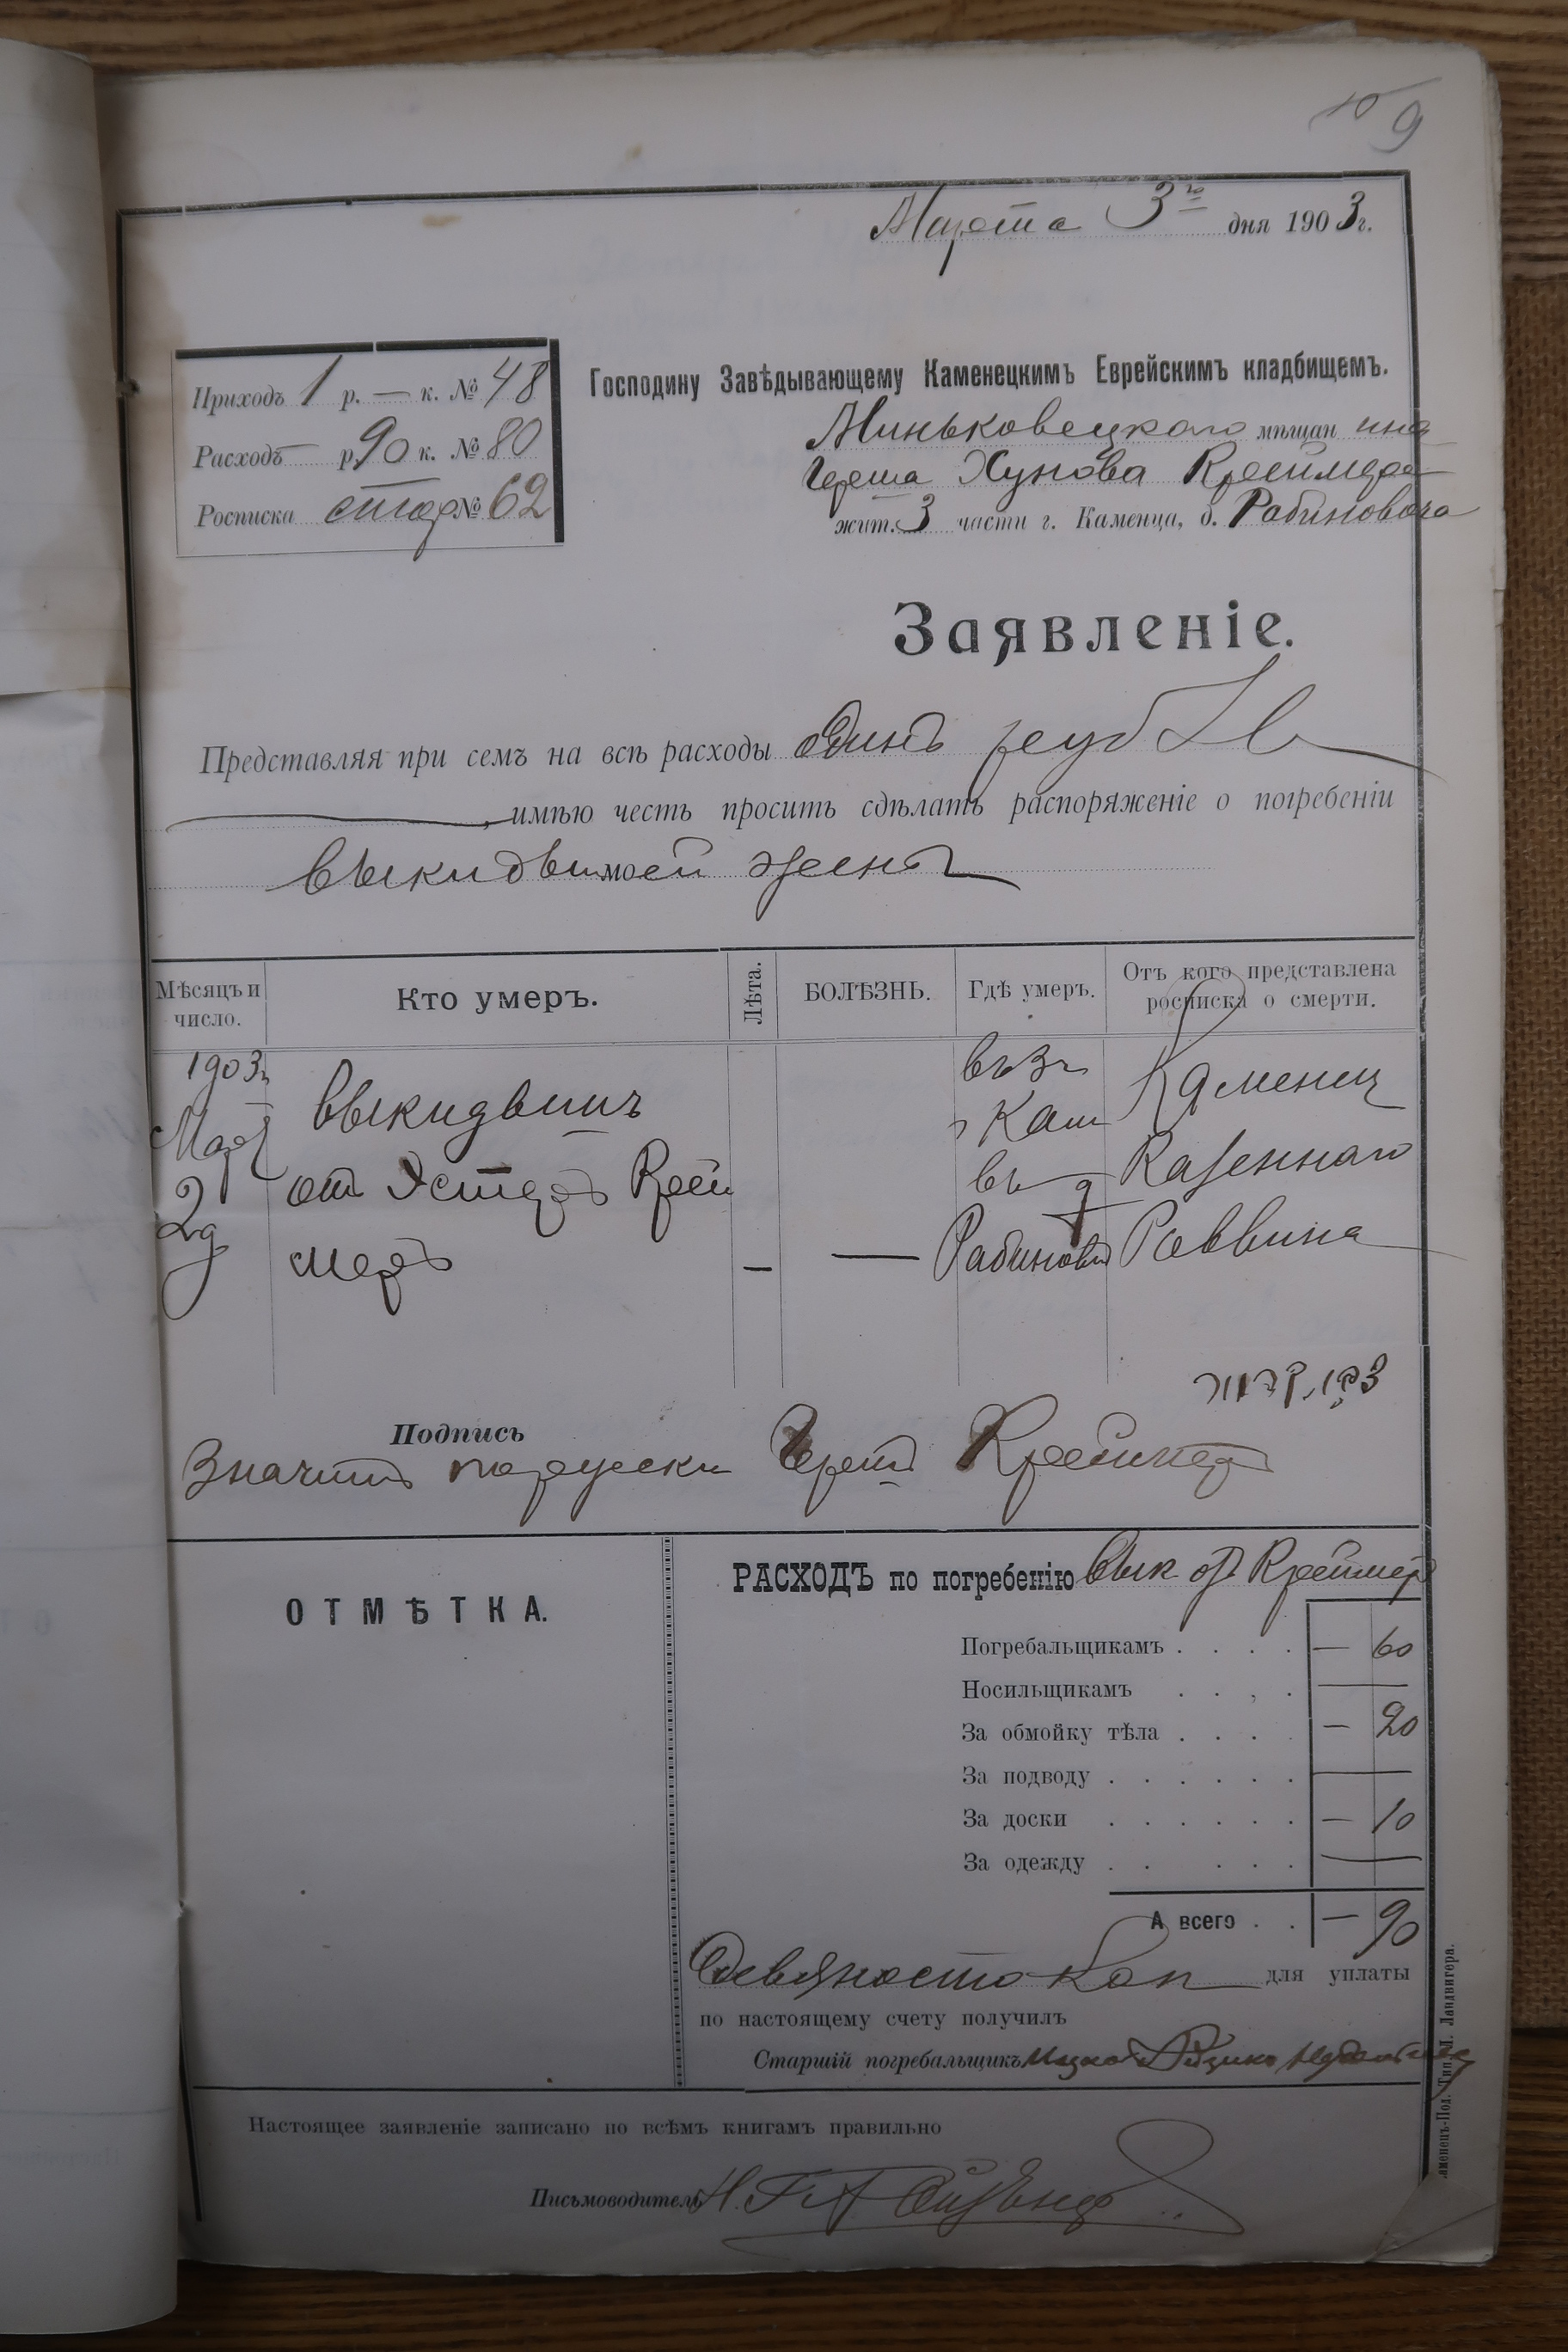 10 9
Марта 3го дня 1903 г.
Приходъ 1 р. — к. № 48
Расходъ — р. 90 к. № 80
Росписка стар № 62
Господину Завѣдывающему Каменецкимъ Еврейскимъ кладбищемъ.
Миньковецкаго мѣщанина
Герша Хунова Креймера
жит. 3 части г. Каменца, д. Рабиновича
Заявленіе.
Представляя при семъ на всѣ расходы одинъ руб
, имѣю честь просить сдѣлать распоряженіе о погребеніи
выкидыш моей жены
Мѣсяцъ и число.
Кто умеръ.
Лѣта.
БОЛѢЗНЬ.
Гдѣ умеръ.
Отъ кого представлена росписка о смерти.
1903 г
Мар
2 д
выкидышъ
отъ Эстеръ Крей
меръ
—
—
въ 3 ч
г Кам
въ д
Рабинови
Каменец
Казеннаго
Раввина
Подпись
Значитъ порусски Гершъ Креймеръ
ОТМѢТКА.
РАСХОДЪ по погребенію вык от Креймеръ
Погребальщикамъ . . . . — 60
Носильщикамъ . . , . —
За обмойку тѣла . . . . — 20
За подводу . . . . . . —
За доски . . . . . . — 10
За одежду . . . . . —
А всего . . — 90
Девяносто коп для уплаты
по настоящему счету получилъ
Старшій погребальщикъ
Настоящее заявленіе записано по всѣмъ книгамъ правильно
Письмоводитель
аменецъ-Под. Тип. М. Ландвигера.